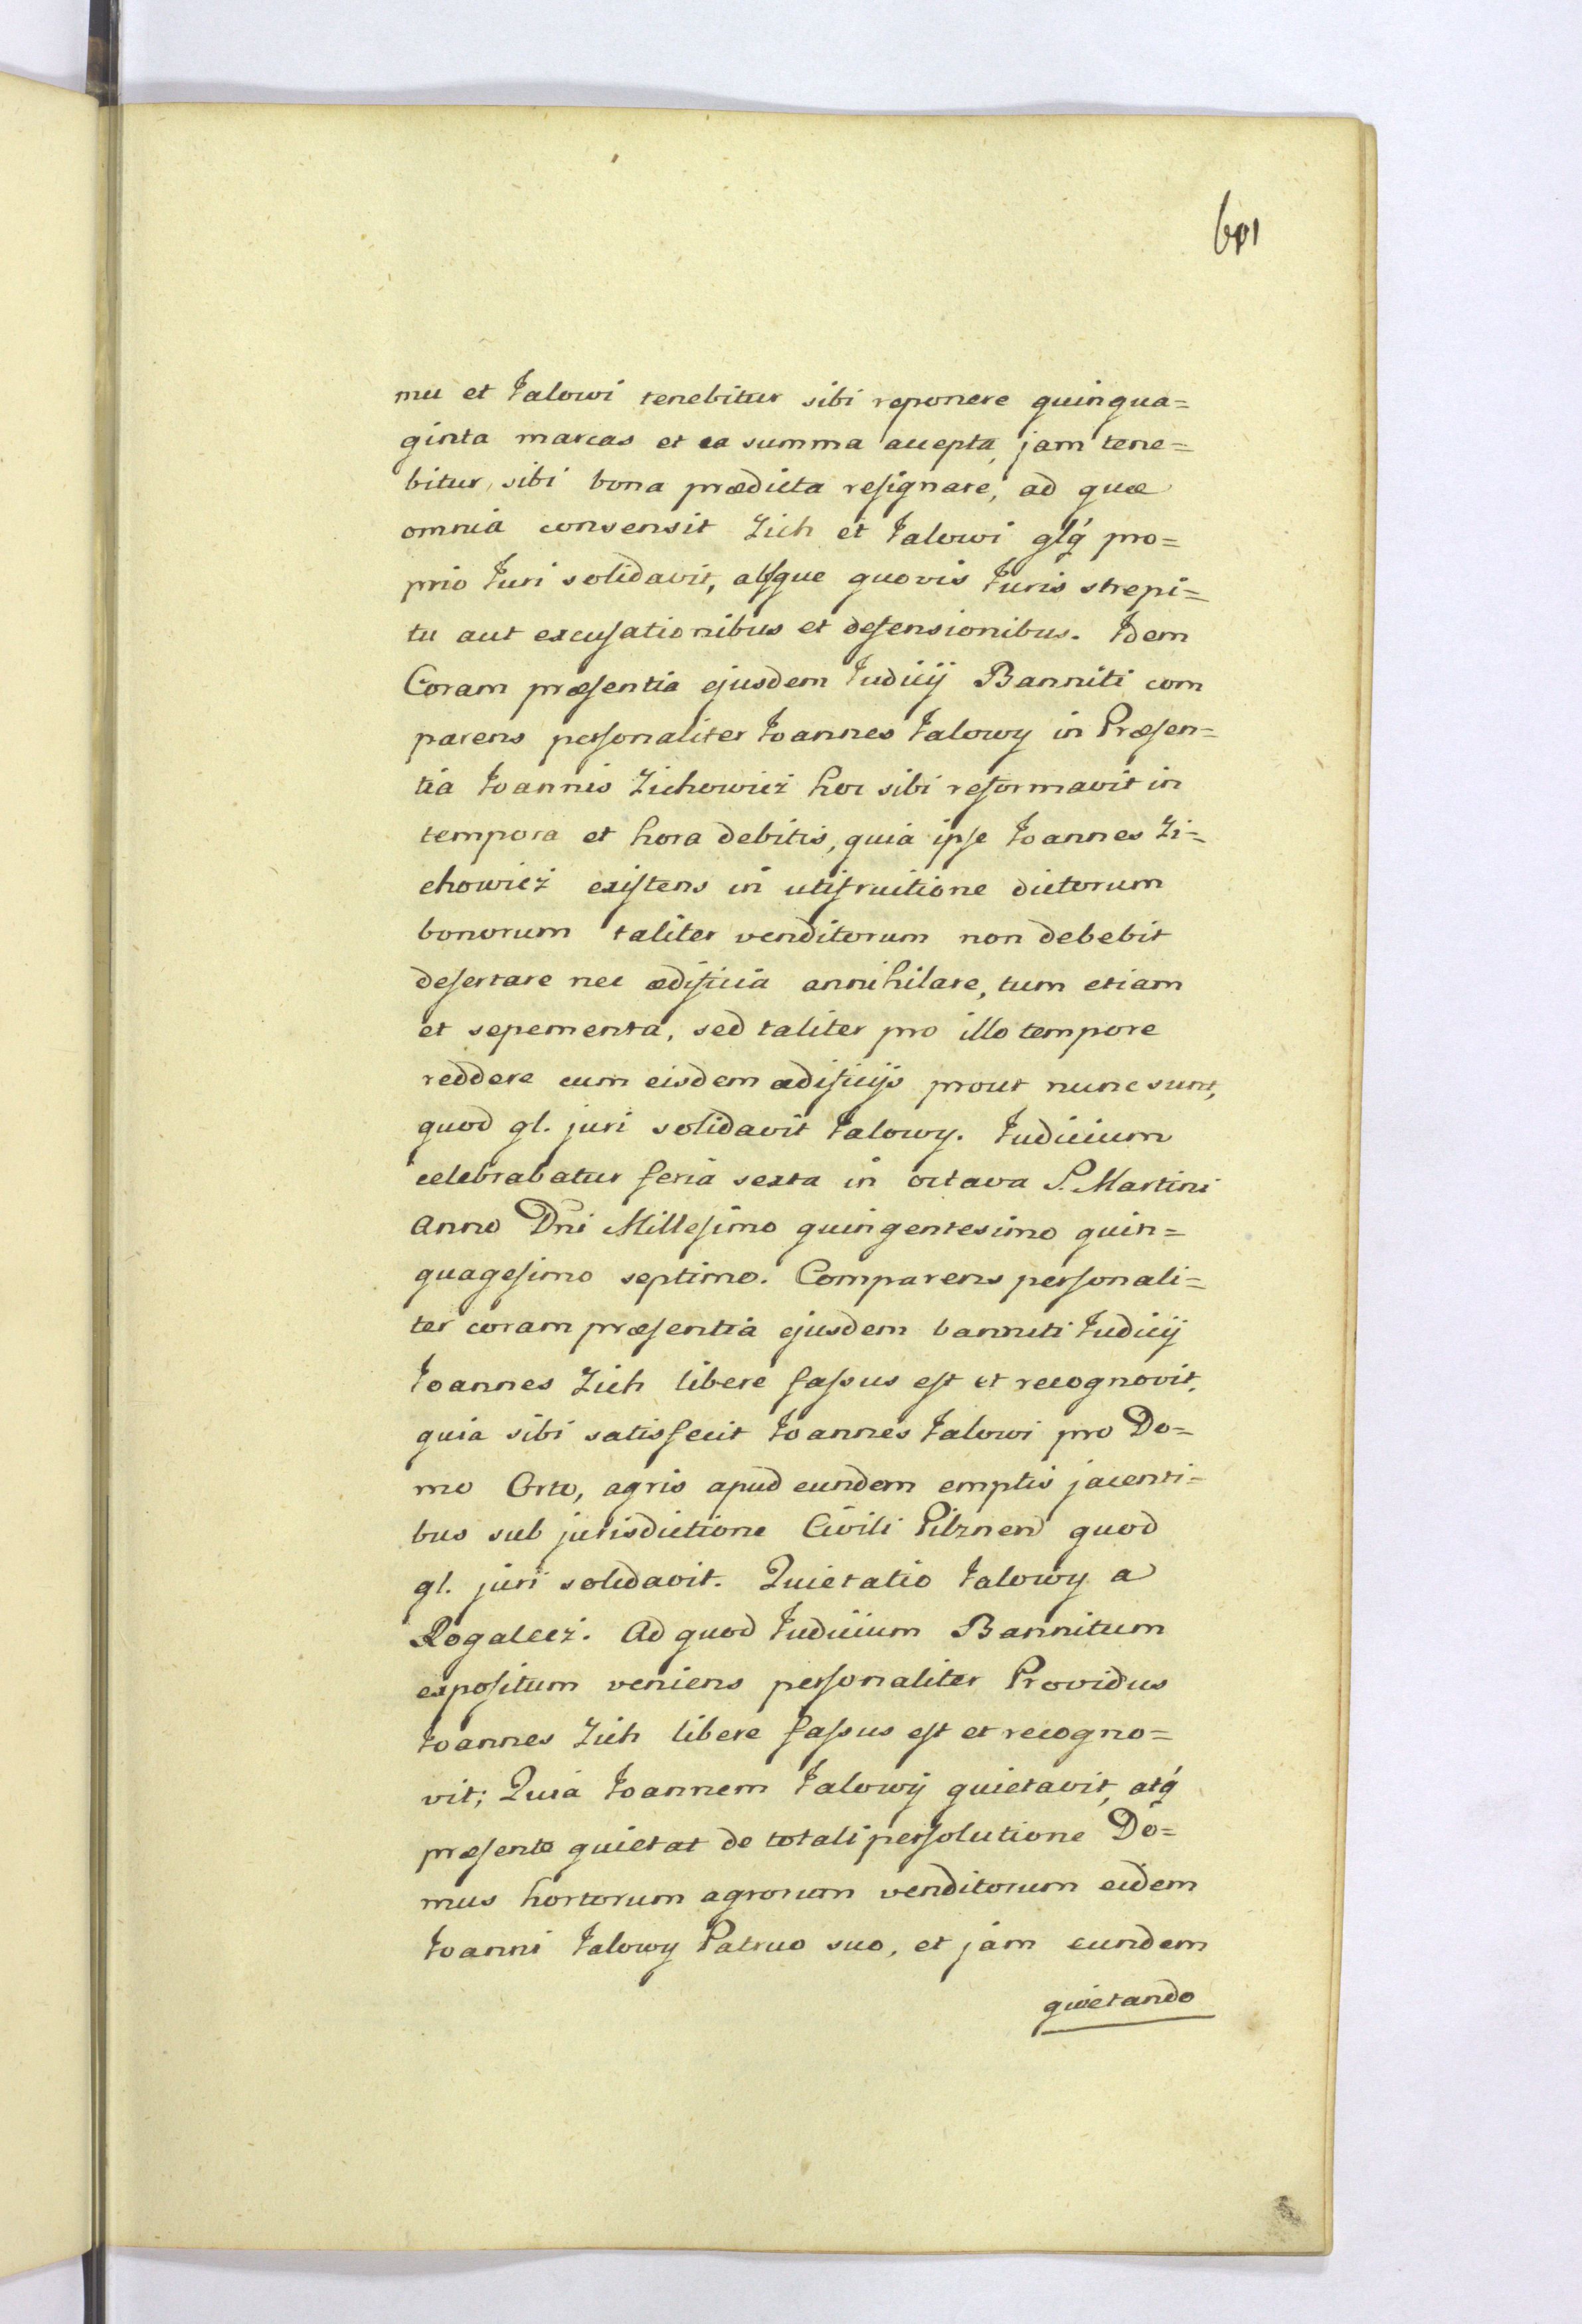 601
mu et Jalowi tenebitur sibi reponere quinqua=
ginta marcas et ea summa accepta, jam tene=
bitur, sibi bona prædicta resignare, ad quæ
omnia consensit Zich et Jalowi glq́ pro=
prio Juri solidavit, absque quovis Juris strepi=
tu aut excusationibus et defensionibus. Idem
Coram præsentia ejusdem Judicij Banniti com
parens personaliter Joannes Jalowy in Præsen=
tia Joannis Zichowicz hoc sibi reformavit in
tempora et hora debitis, quia ipse Joannes Zi=
chowicz existens in utifruitione dictorum
bonorum taliter venditorum non debebit
desertare nec ædificia annihilare, tum etiam
et sepementa, sed taliter pro illo tempore
reddere cum eisdem ædificijs prout nunc sunt,
quod gl. juri solidavit Jalowy. Judicium
celebrabatur feria sexta in octava S. Martini
Anno Dni Millesimo quingentesimo quin=
quagesimo septimo. Comparens personali=
ter coram præsentia ejusdem banniti Judicij
Joannes Zich libere fassus est et recognovit,
quia sibi satisfecit Joannes Jalowi pro Do=
mo Orto, agris apud eundem emptis jacenti=
bus sub jurisdictione Civili Pilznen quod
gl. juri solidavit. Quietatio Jalowy a
Rogalecz. Ad quod Judicium Bannitum
expositum veniens personaliter Providus
Joannes Zich libere fassus est et recogno=
vit; Quia Joannem Jalowÿ quietavit, atq́
præsente quietat de totali persolutione Do=
mus hortorum agrorum venditorum eidem
Joanni Jalowy Patruo suo, et jam eundem
quietando